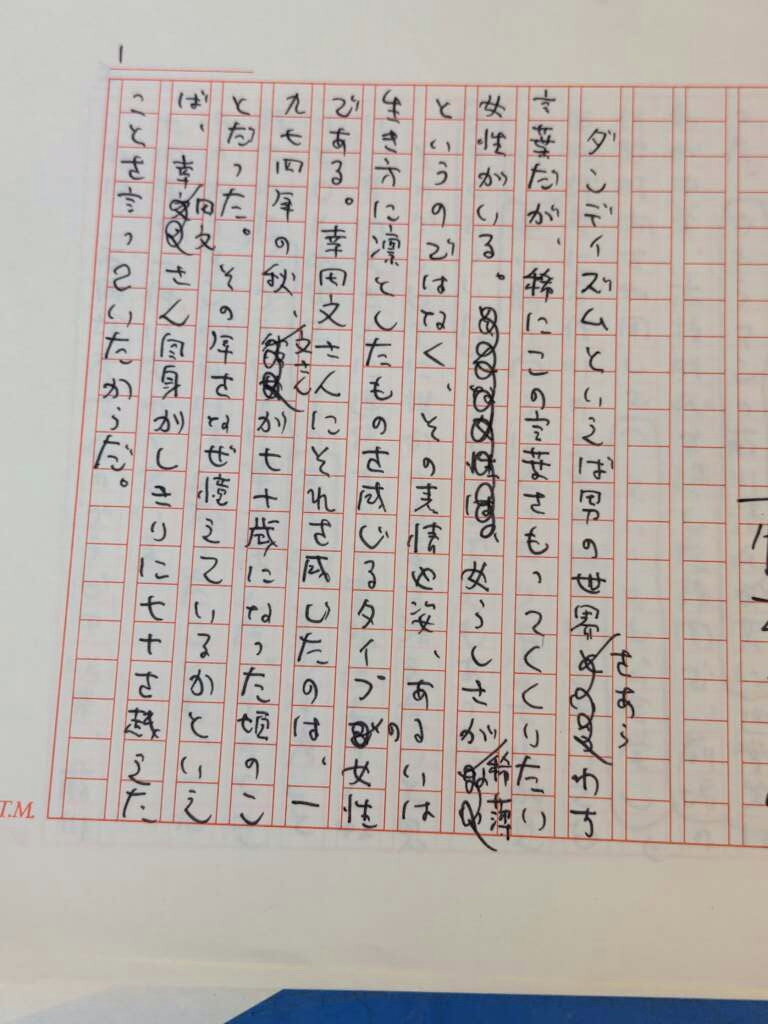 ダンディズムといえば男の世界をあらわす
言葉だが、稀にこの言葉をもってくくりたい
女性がいる。女らしさが稀薄
というのではなく、その表情や姿、あるいは
生き方に凛としたものを感じるタイプの女性
である。幸田文さんにそれを感じたのは、一
九七四年の秋、文さんが七十歳になった頃のこ
とだった。その年をなぜ憶えているかといえ
ば、幸田文さん自身がしきりに七十を越えた
ことを言っていたからだ。
1
T.M.